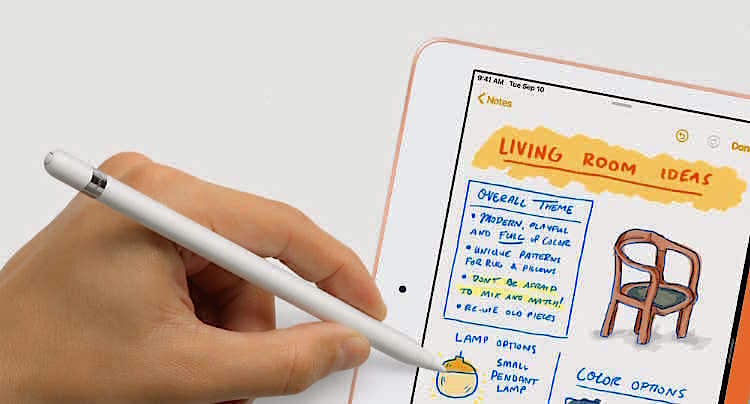 9:41 AM Tue Sep 10
Notes
Don
LIVING ROOM IDEAS
OVERALL THEME
• MODERN, PLAYFUL
AND FULL OF COLOR
• UNIQUE PATTERNS
FOR RUG & PILLOWS
• DON'T BE AFRAID
TO MIX AND MATCH!
• RE-USE OLD PIECES
LAMP OPTIONS
SMALL
PENDANT
LAMP
COLOR OPTIONS